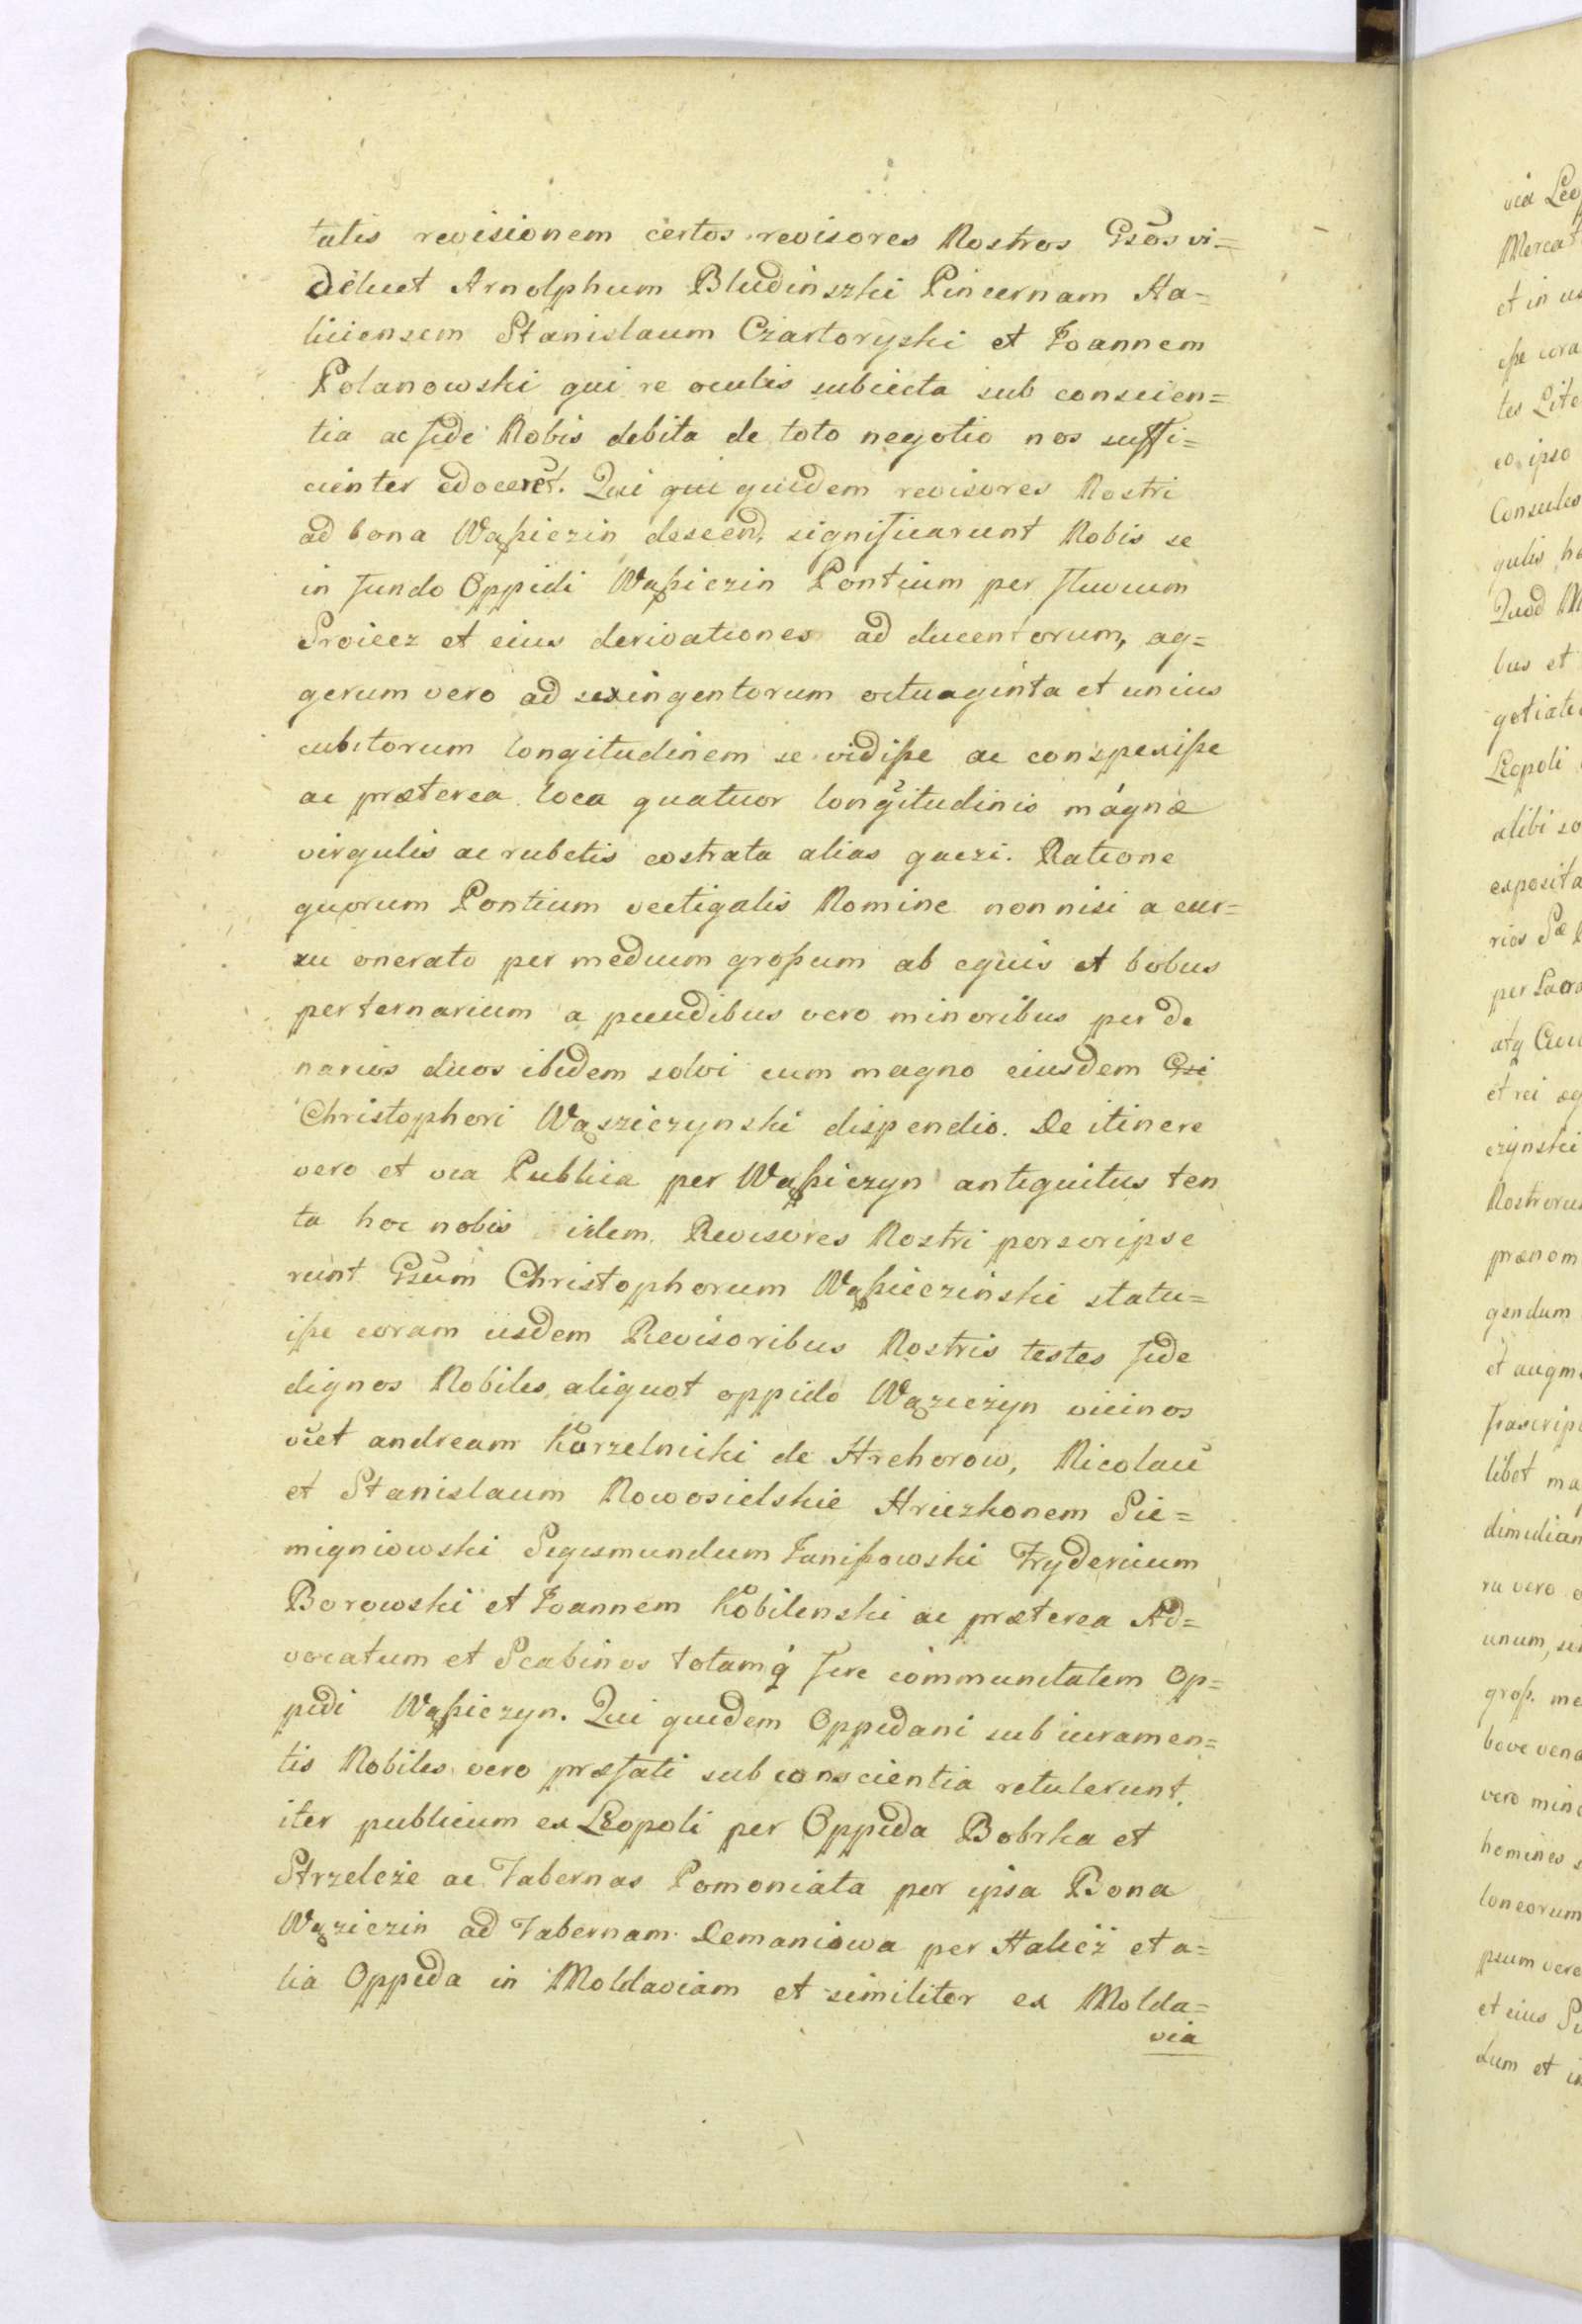 talis revisionem certos revisores Nostros Gsos vi=
delicet Arnolphum Bludinszki Pincernam Ha=
liciensem Stanislaum Czartoryski et Joannem
Polanowski qui re oculis subiecta sub conscien=
tia ac fide Nobis debita de toto negotio nos suffi=
cienter edoceret. Qui qui quidem revisores Nostri
ad bona Wąßiczin descend, significarunt Nobis se
in fundo Oppidi Wąßiczin Pontium per fluvium
Swicz et eius derivationes ad ducentorum, ag=
gerum vero ad sexingentorum octuaginta et unius
cubitorum longitudinem se vidiße ac conspexiße
ac præterea loca quatuor longitudinis magnæ
virgulis ac rubetis costrata alias gaczi. Ratione
quorum Pontium vectigalis Nomine non nisi a cur=
ru onerato per medium großum ab equis et bobus
per ternarium a pecudibus vero minoribus per de
narios duos ibidem solvi cum magno eiusdem Gsi
Christophori Wąsziczynski dispendio. De itinere
vero et via Publica per Wąßiczyn antiquitus ten
ta hoc nobis iidem Revisores Nostri perscripse
runt Gsum Christophorum Wąßiczinski statu=
iße coram iisdem Revisoribus Nostris testes fide
dignos Nobiles aliquot oppido Wąziczyn vicinos
vict andream Korzelnicki de Hrehorow, Nicolau
et Stanislaum Nowosielskie Hriczkonem Sie=
migniowski Segismundum Janißowski Frydericum
Borowski et Joannem Kobilenski ac præterea Ad=
vocatum et Scabinos totamq fere communitatem Op=
pidi Wąßiczyn. Qui quidem Oppidani sub iuramen=
tis Nobiles vero præfati sub conscientia retulerunt
iter publicum ex Leopoli per Oppida Bobrka et
Strzeleże ac Tabernas Pomoniata per ipsa Bona
Wąziczin ad Tabernam Demaniowa per Halicż et a=
lia Oppida in Moldaviam et similiter ex Molda=
via
via Leo
Mercat
et in us
eße cora
tes Lite
eo ipso
Consules
gulis ho
Quod M
bus et
gotiati
Leopoli
alibi so
exposita
rios
per Sacra
atq
et rei æq
czynski
Nostroru
prænom
gendum
et augm
libet ma
dimidian
ra vero
unum, si
groß. me
bove vena
vero mino
homines
loneorum
psum vero
et eius
dum et in